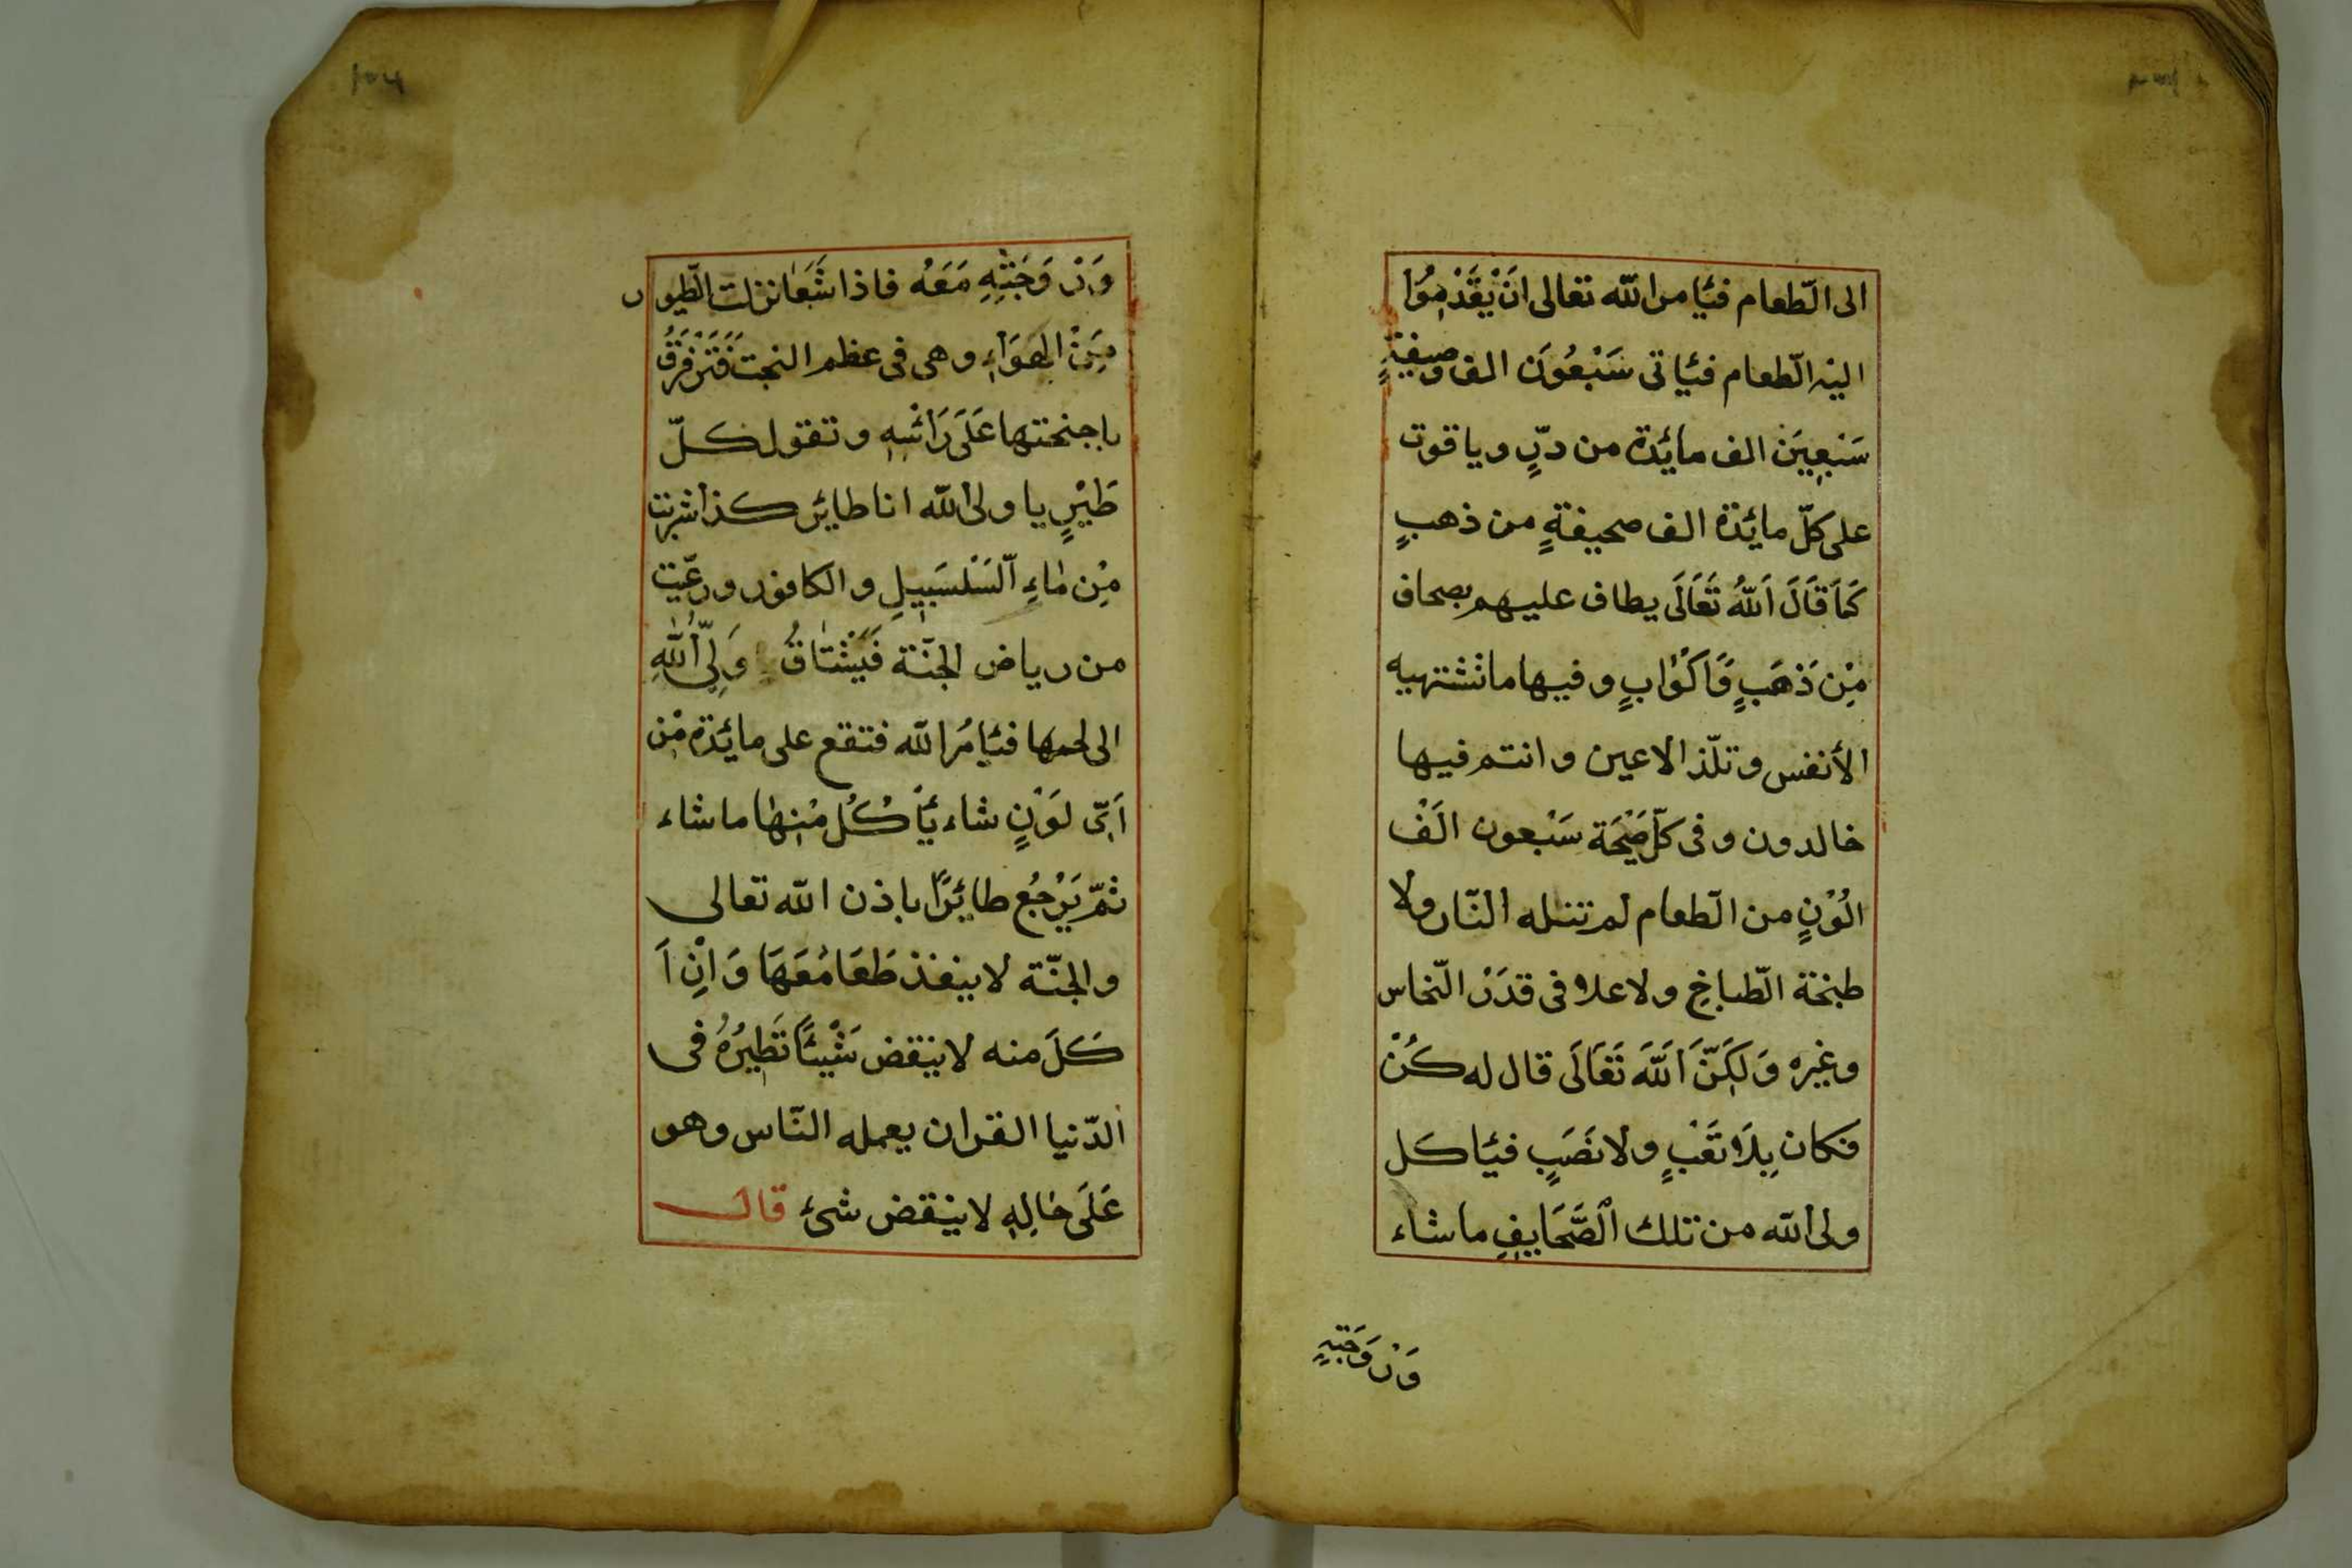 الى الطّعام فيأمر الله تعالى اَنْ يُقَدِّمُوْا
اليه الطّعام فيأتى سَبْعُوْنَ الف وصيفةٍ
سَبْعِيْنَ الف مائدة من درٍّ و ياقوت
على كلّ مائدة الف صحيفةٍ من ذهبٍ
كَمَا قَالَ اللهُ تَعَالَى يطاف عليهم بصحاف
مِنْ ذَهَبٍ وَاَكْوَابٍ و فيها ما تشتهيه
الأنفس و تلّذ الاعين و انتم فيها
خالدون و فى كلّ صَيْحَة سَبْعون الَفْ
الُوْنٍ من الطّعام لم تنله النّار ولا
طبخة الطّباخِ ولا علا فى قدَرْ النّحاس
وغيره وَلَكِنَّ اَللهَ تَعَالَى قال له كُنْ
فكان بِلَا تَعْبٍ ولا نَصَبٍ فيأكل
ولى الله من تلك الصَّحَايِفِ ما شاء
وَزْوَجَتِهِ
وَزْوَجَتِهِ مَعَهُ فاذا شَبَعَا نزلت الطّيور
مِنْ الهَوَاءِ وهى فى عظم البخت فَتَرْفِرَفُ
باجنحتها عَلَى رَائسِهِ و تقول كلّ
طَيْرٍ يا ولى الله انا طاير كذا شربت
مِنْ مَاءِ السَّلْسَبِيلِ و الكافور و رعّيت
من رياض الجنّة فَيَشْتَاقُ وَلِىُّ اللهِ
الى لحمها فيأمُر الله فتقع على مائدة مْن
اَىّ لَوْنٍ شاء يَأكُلُ مْنِهَا ما شاء
ثمّ يَرْجُع طايئرًا باذن الله تعالى
و الجنّة لا ينفذ طَعَامُعَهَا وَاِنْ اَ
كَلَ منه لا ينقض شَيْئًا نَظِيرُهُ فى
الدّنيا القران يعمله النّاس وهو
عَلَى حَالِهِ لا ينقض شئ قال